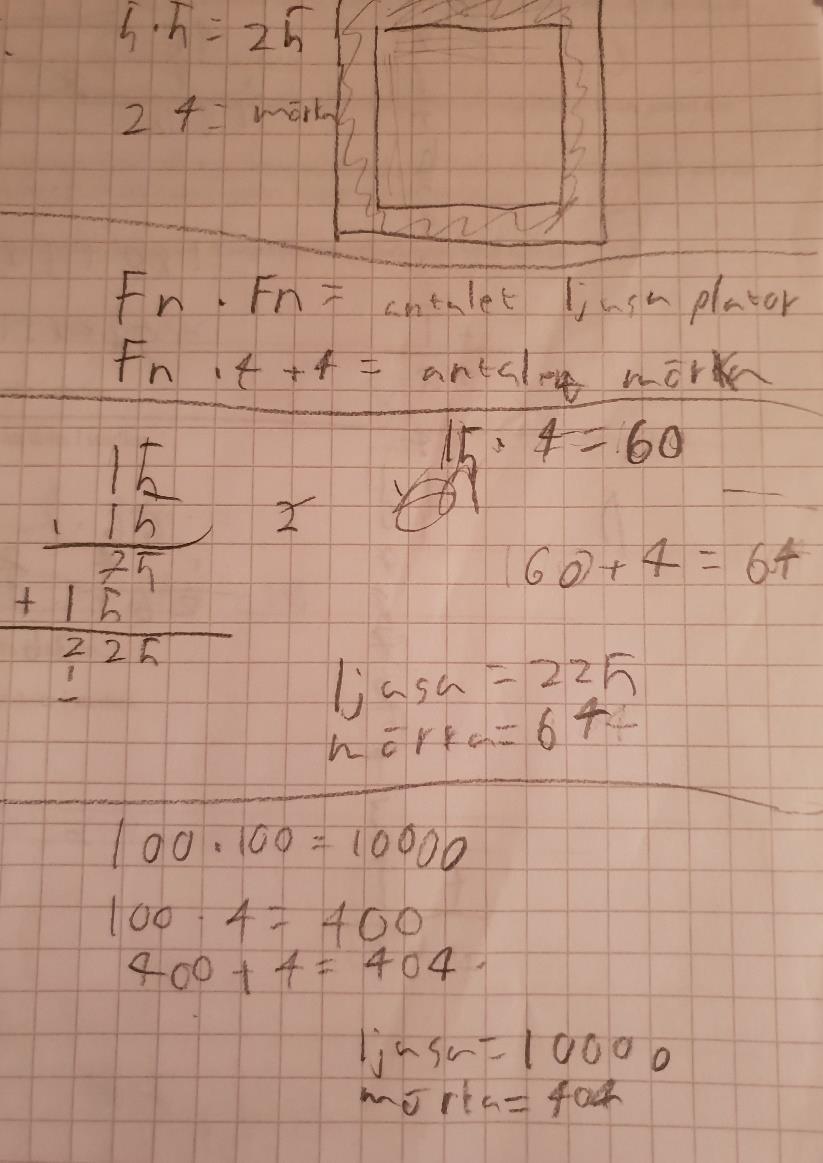 5·5=25
24= mörka
Fn · Fn = antalet ljusa plator
Fn ·4 +4 = antalet mörka
15
· 15
75
+ 15
225
1
2
15· 4=60
60+4=64
ljusa=225
mörka=64
100·100=10000
100·4=400
400+4=404
ljusa=10000
mörka=404